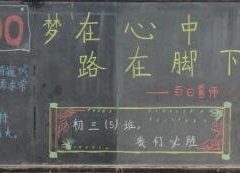 00
梦在心中
路在脚下
——百日誓师
初三(5)班,
我们必胜